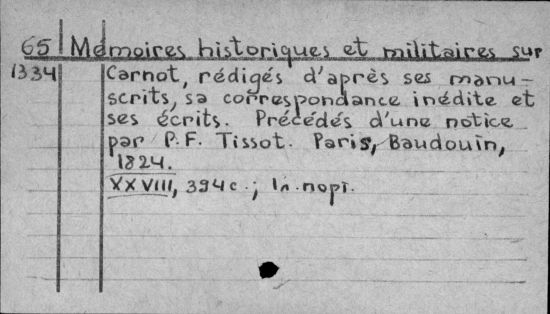 65 Mémoires historiques et militaires sur
1334 Carnot, rédigés d'après ses manu-
scrits, sa correspondance inédite et
ses écrits. Précédés d'une notice
par P.F. Tissot. Paris, Baudouin,
1824.
XXVIII, 394 с.; 1 л. порт.